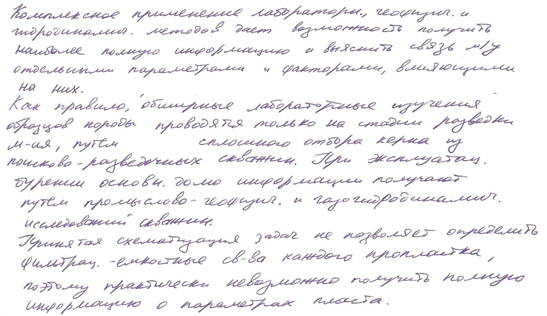 Комплексное применение лаборатори., геофизич. и
гидродинамич. методов дает возможность получить
наиболее полную информацию и выяснить связь м/у
отдельными параметрами и факторами, влияющими
на них.
Как правило, обширные лабораторные изучения
образцов породы проводятся только на стадии разведки
м-ия, путем сплошного отбора керна из
поисково-разведочных скважин. При эксплуатац.
бурении основн. долю информации получают
путем промыслово-геофизич. и газогидродинамич.
исследований скважин.
Принятая схематизация задач не позволяет определить
фильтрац.-емкостные св-ва каждого пропластка,
поэтому практически невозможно получить полную
информацию о параметрах пласта.